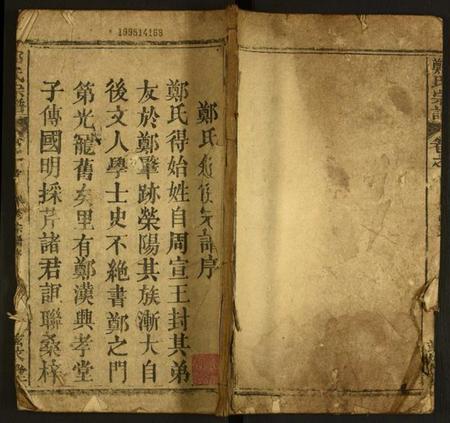 199514168
鄭氏序
鄭氏得始姓自周宣王封其弟
友於鄭肇跡榮陽其族漸大自
後文人學士史不絕書鄭之門
第光寵舊矣里有鄭漢興孝堂
子傳國明採芹諸君詎聯桑梓
鄭氏宗譜
卷之